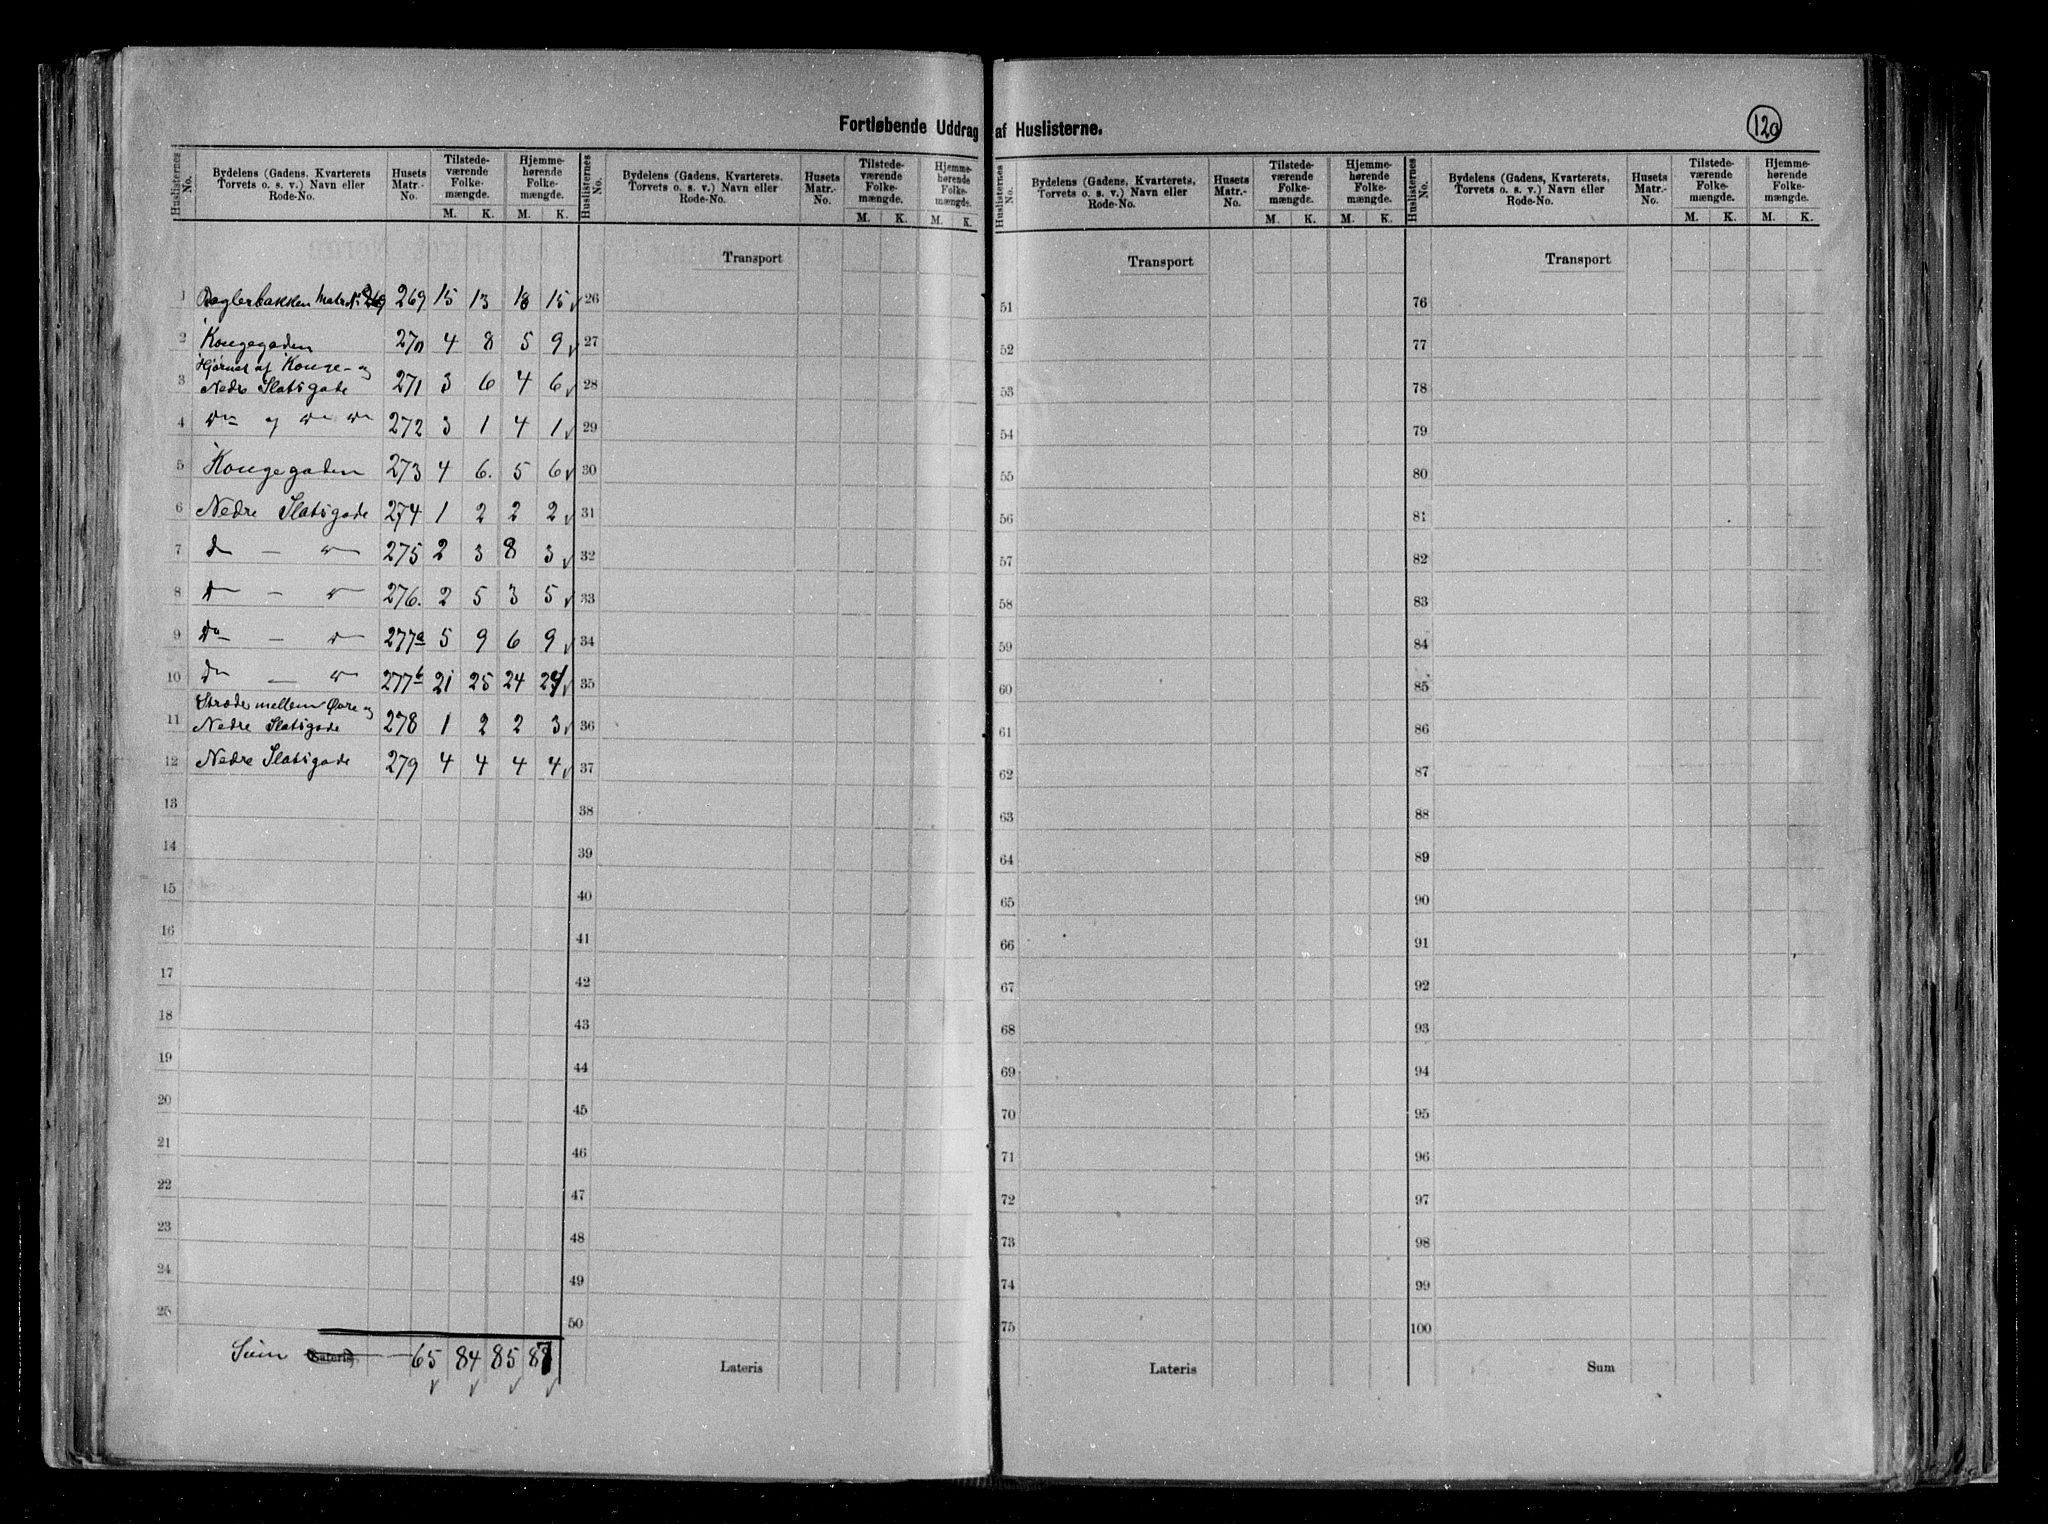 Fortløbende Uddrag af Huslisterne.
120
Huslisternes No. Bydelens (Gadens, Kvarterets Torvets o. s. v.) Navn eller Rode-No. Husets Matr.-No. Tilstede-værende Folke-mængde. M. K. Hjemme-hørende Folke-mængde. M. K.
Huslisternes No. Bydelens (Gadens, Kvarterets, Torvets o. s. v.) Navn eller Rode-No. Husets Matr.-No. Tilstede-værende Folke-mængde. M. K. Hjemme-hørende Folke-mængde. M. K.
Huslisternes No. Bydelens (Gadens, Kvarterets, Torvets o. s. v.) Navn eller Rode-No. Husets Matr.-No. Tilstede-værende Folke-mængde. M. K. Hjemme-hørende Folke-mængde. M. K.
Huslisternes No. Bydelens (Gadens, Kvarterets, Torvets o. s. v.) Navn eller Rode-No. Husets Matr.-No. Tilstede-værende Folke-mængde. M. K. Hjemme-hørende Folke-mængde. M. K.
Transport Transport Transport
1 Baglerbakken Matr. N: 269 269 15 13 18 15 26 51 76
2 Kongegaden 270 4 8 5 9 27 52 77
Hjørnet af Konge- og
3 Nedre Slotsgade 271 3 6 4 6 28 53 78
4 Do og Do Do 272 3 1 4 1 29 54 79
5 Kongegaden 273 4 6. 5 6 30 55 80
6 Nedre Slotsgade 274 1 2 2 2 31 56 81
7 Do — Do 275 2 3 8 3 32 57 82
8 Do — Do 276. 2 5 3 5 33 58 83
9 Do — Do 277a 5 9 6 9 34 59 84
10 Do — Do 277b 21 25 24 24 35 60 85
Stræde mellem Øvre og
11 Nedre Slotsgade 278 1 2 2 3 36 61 86
12 Nedre Slotsgade 279 4 4 4 4 37 62 87
13 38 63 88
14 39 64 89
15 40 65 90
16 41 66 91
17 42 67 92
18 43 68 93
19 44 69 94
20 45 70 95
21 46 71 96
22 47 72 97
23 48 73 98
24 49 74 99
25 50 75 100
Sum Lateris 65 84 85 87 Lateris Lateris Sum